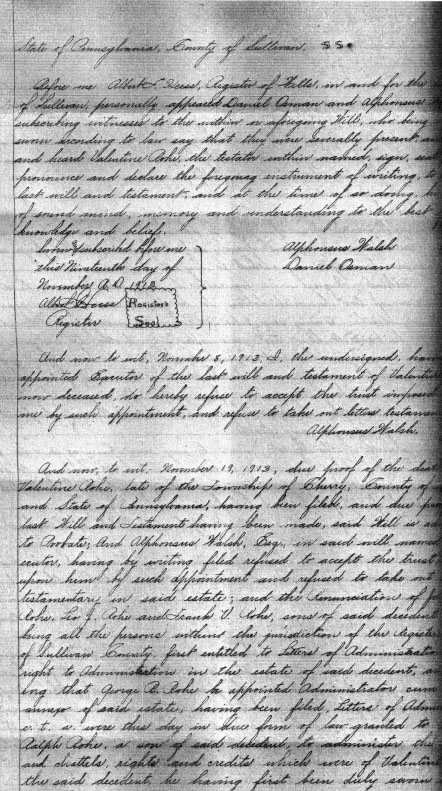 State of Pennsylvania, County of Sullivan, SS.
Before me Albert F. Heess, Register of Wills, in and for the
of Sullivan, personally appeared Daniel Osman and Alphonsus
subscribing witnesses to the within or aforegoing Will, who being
sworn according to law say that they were severally present, and
and heard Valentine Rohe, the testator within named, sign, seal
pronounce and declare the foregoing instrument of writing, to
last will and testament, and at the time of so doing, h
of sound mind, memory and understanding to the best
knowledge and belief.
Sworn & subscribed before me
this Nineteenth day of
November A.D. 1913
Albert F. Heess
Register
Registers
Seal
Alphonsus Walsh
Daniel Osman
And now to wit, November 8, 1913, I, the undersigned, having
appointed Executor of the last will and testament of Valentine
now deceased, do hereby refuse to accept the trust imposed
me by such appointment, and refuse to take out letters testamen
Alphonsus Walsh.
And now, to wit, November 19, 1913, due proof of the death
Valentine Rohe, late of the Township of Cherry, County of
and State of Pennsylvania, having been filed, and due proof
last Will and Testament having been made, said Will is ad
to Probate; And Alphonsus Walsh, Esq., in said will named
ecutor, having by writing filed refused to accept the trust
upon him by such appointment and refused to take out
testamentary in said estate; and the renunciation of
Rohe, Leo J. Rohe and Frank V. Rohe, sons of said decedent
being all the persons within the jurisdiction of the Register
of Sullivan County, first entitled to Letters of Administration
right to Administration in the estate of said decedent, as
ing that George R. Rohe be appointed Administrator, cum
annexo of said estate, having been filed, Letters of Admin
c. t. a. were this day in due form of law granted to
Ralph Rohe, a son of said decedent, to administer the
and chattels, rights and credits which were of Valentine
the said decedent, he having first been duly sworn